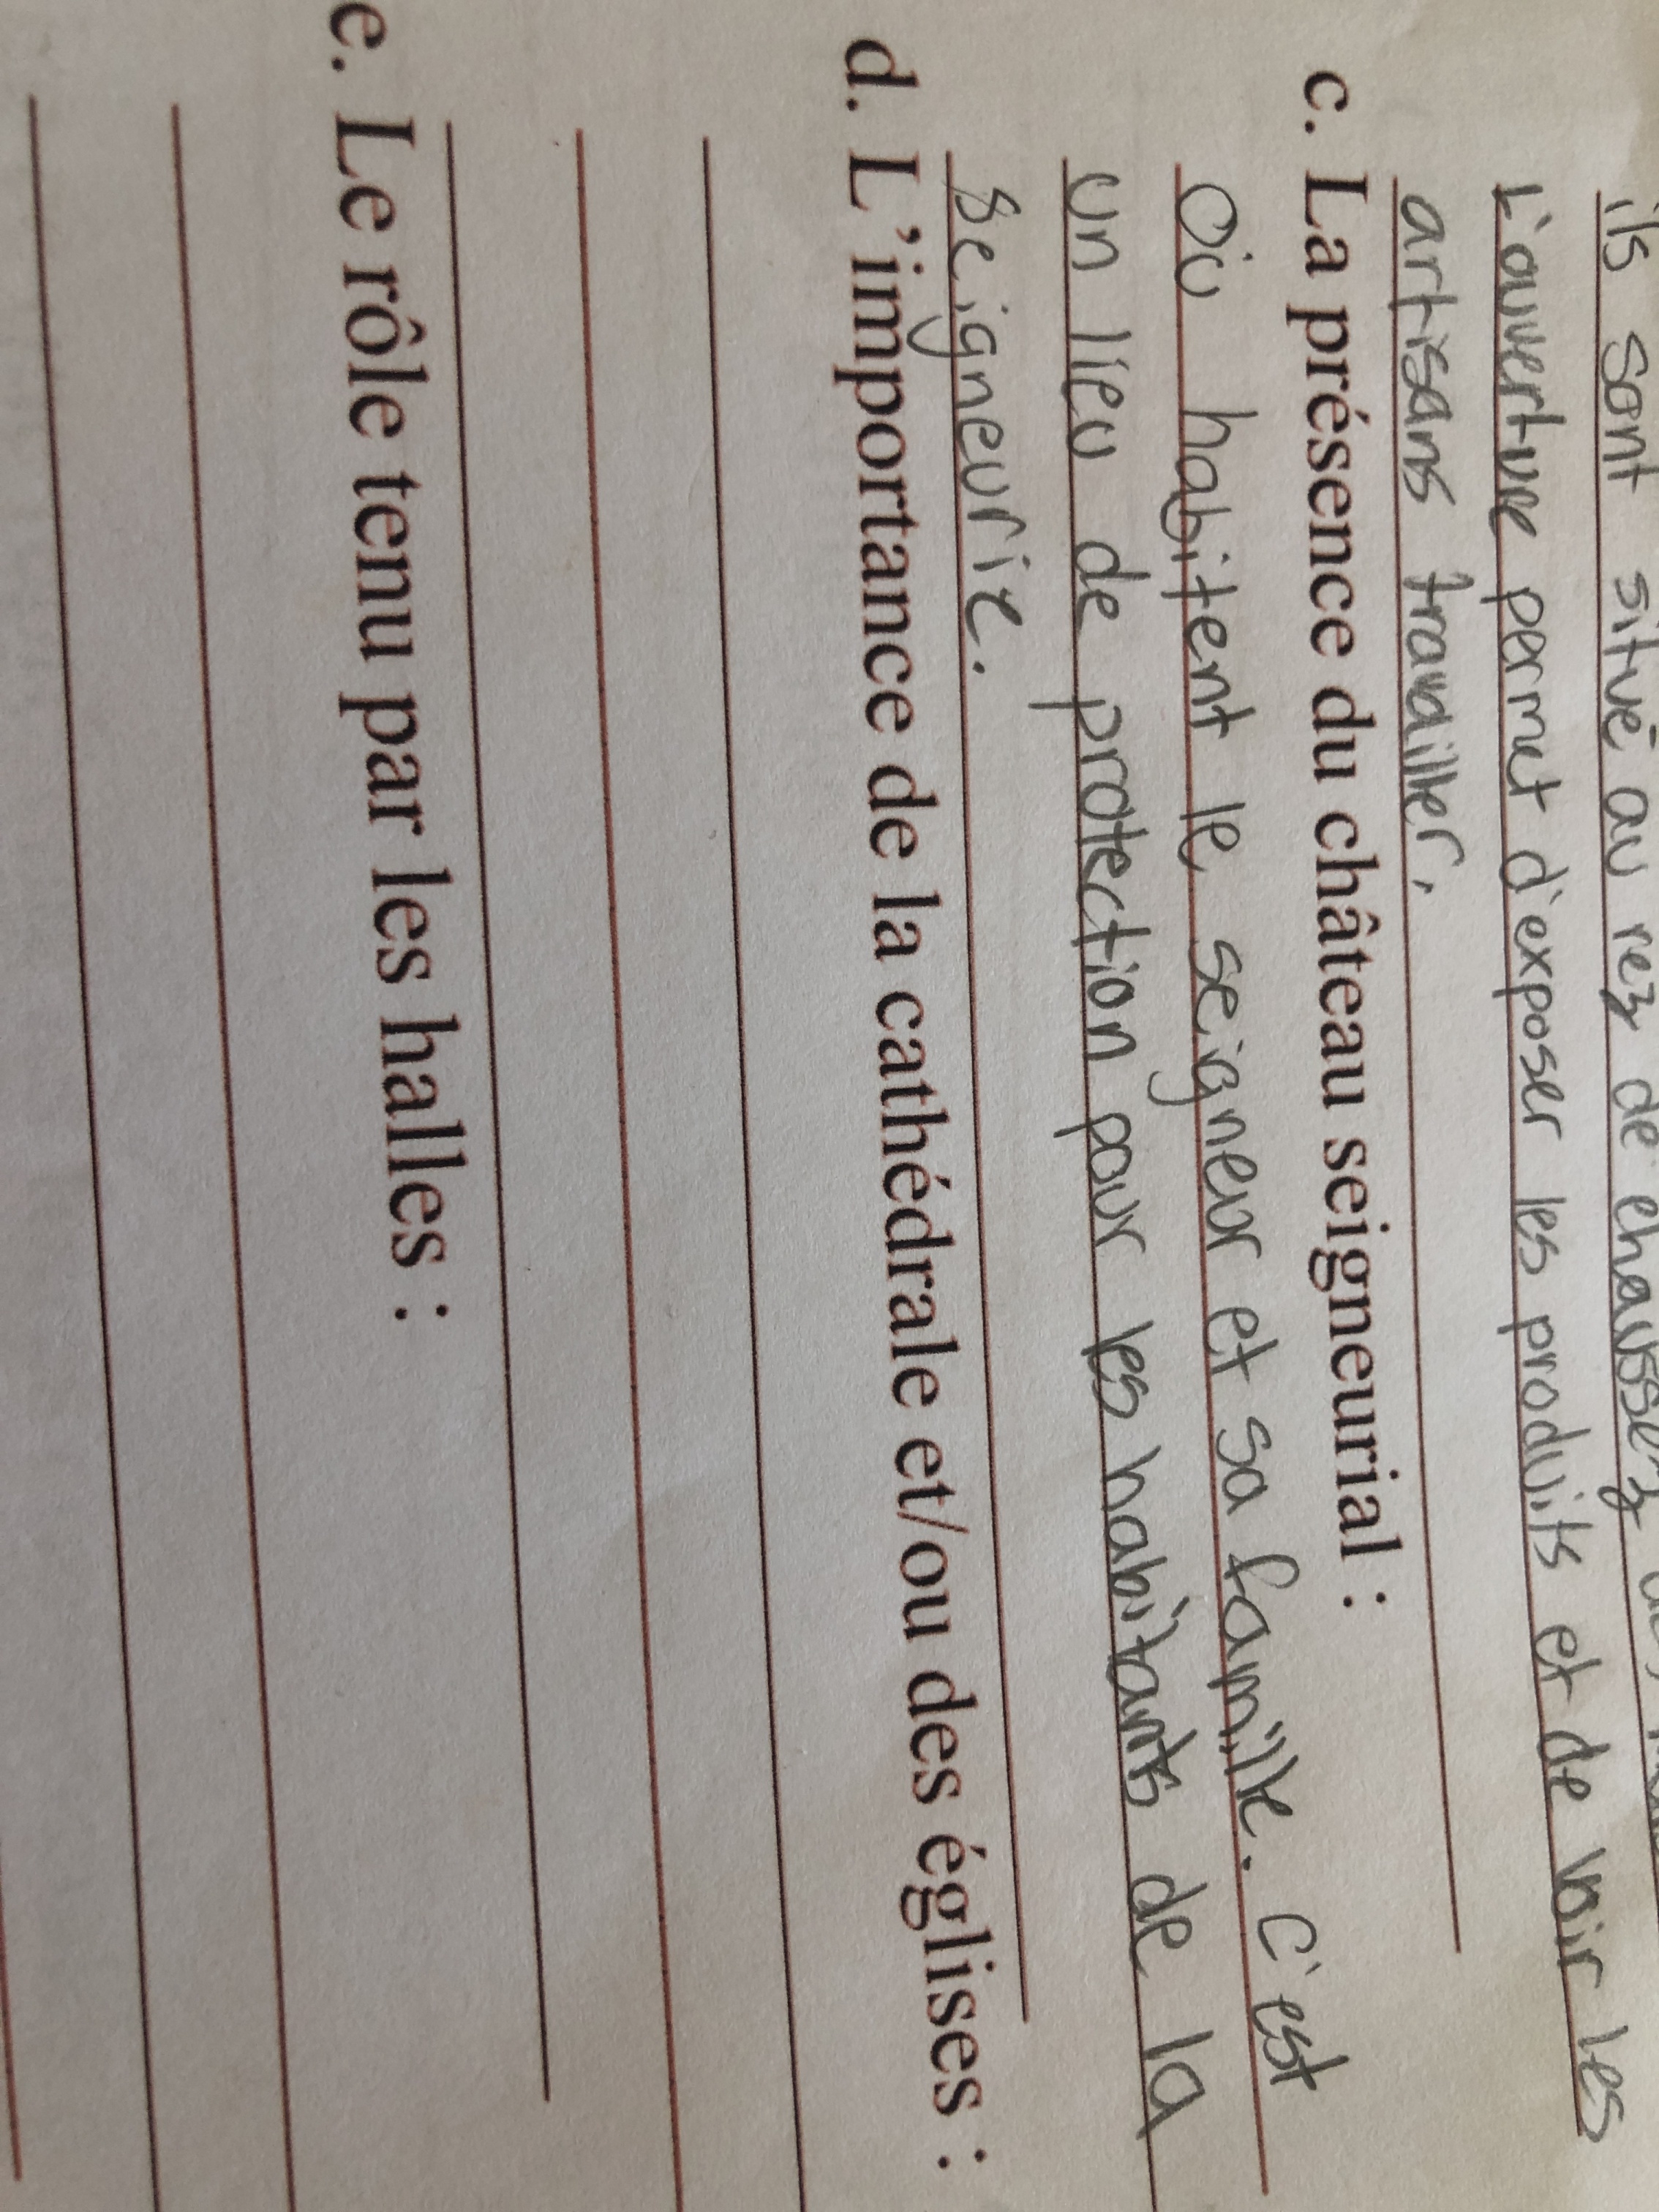 ils sont situé au rez de chaussez
L'ouverture permet d'exposer les produits et de voir les
artisans travailler.
c. La présence du château seigneurial :
Où habitent le seigneur et sa famille. C'est
un lieu de protection pour les habitants de la
seigneurie.
d. L'importance de la cathédrale et/ou des églises :
e. Le rôle tenu par les halles :